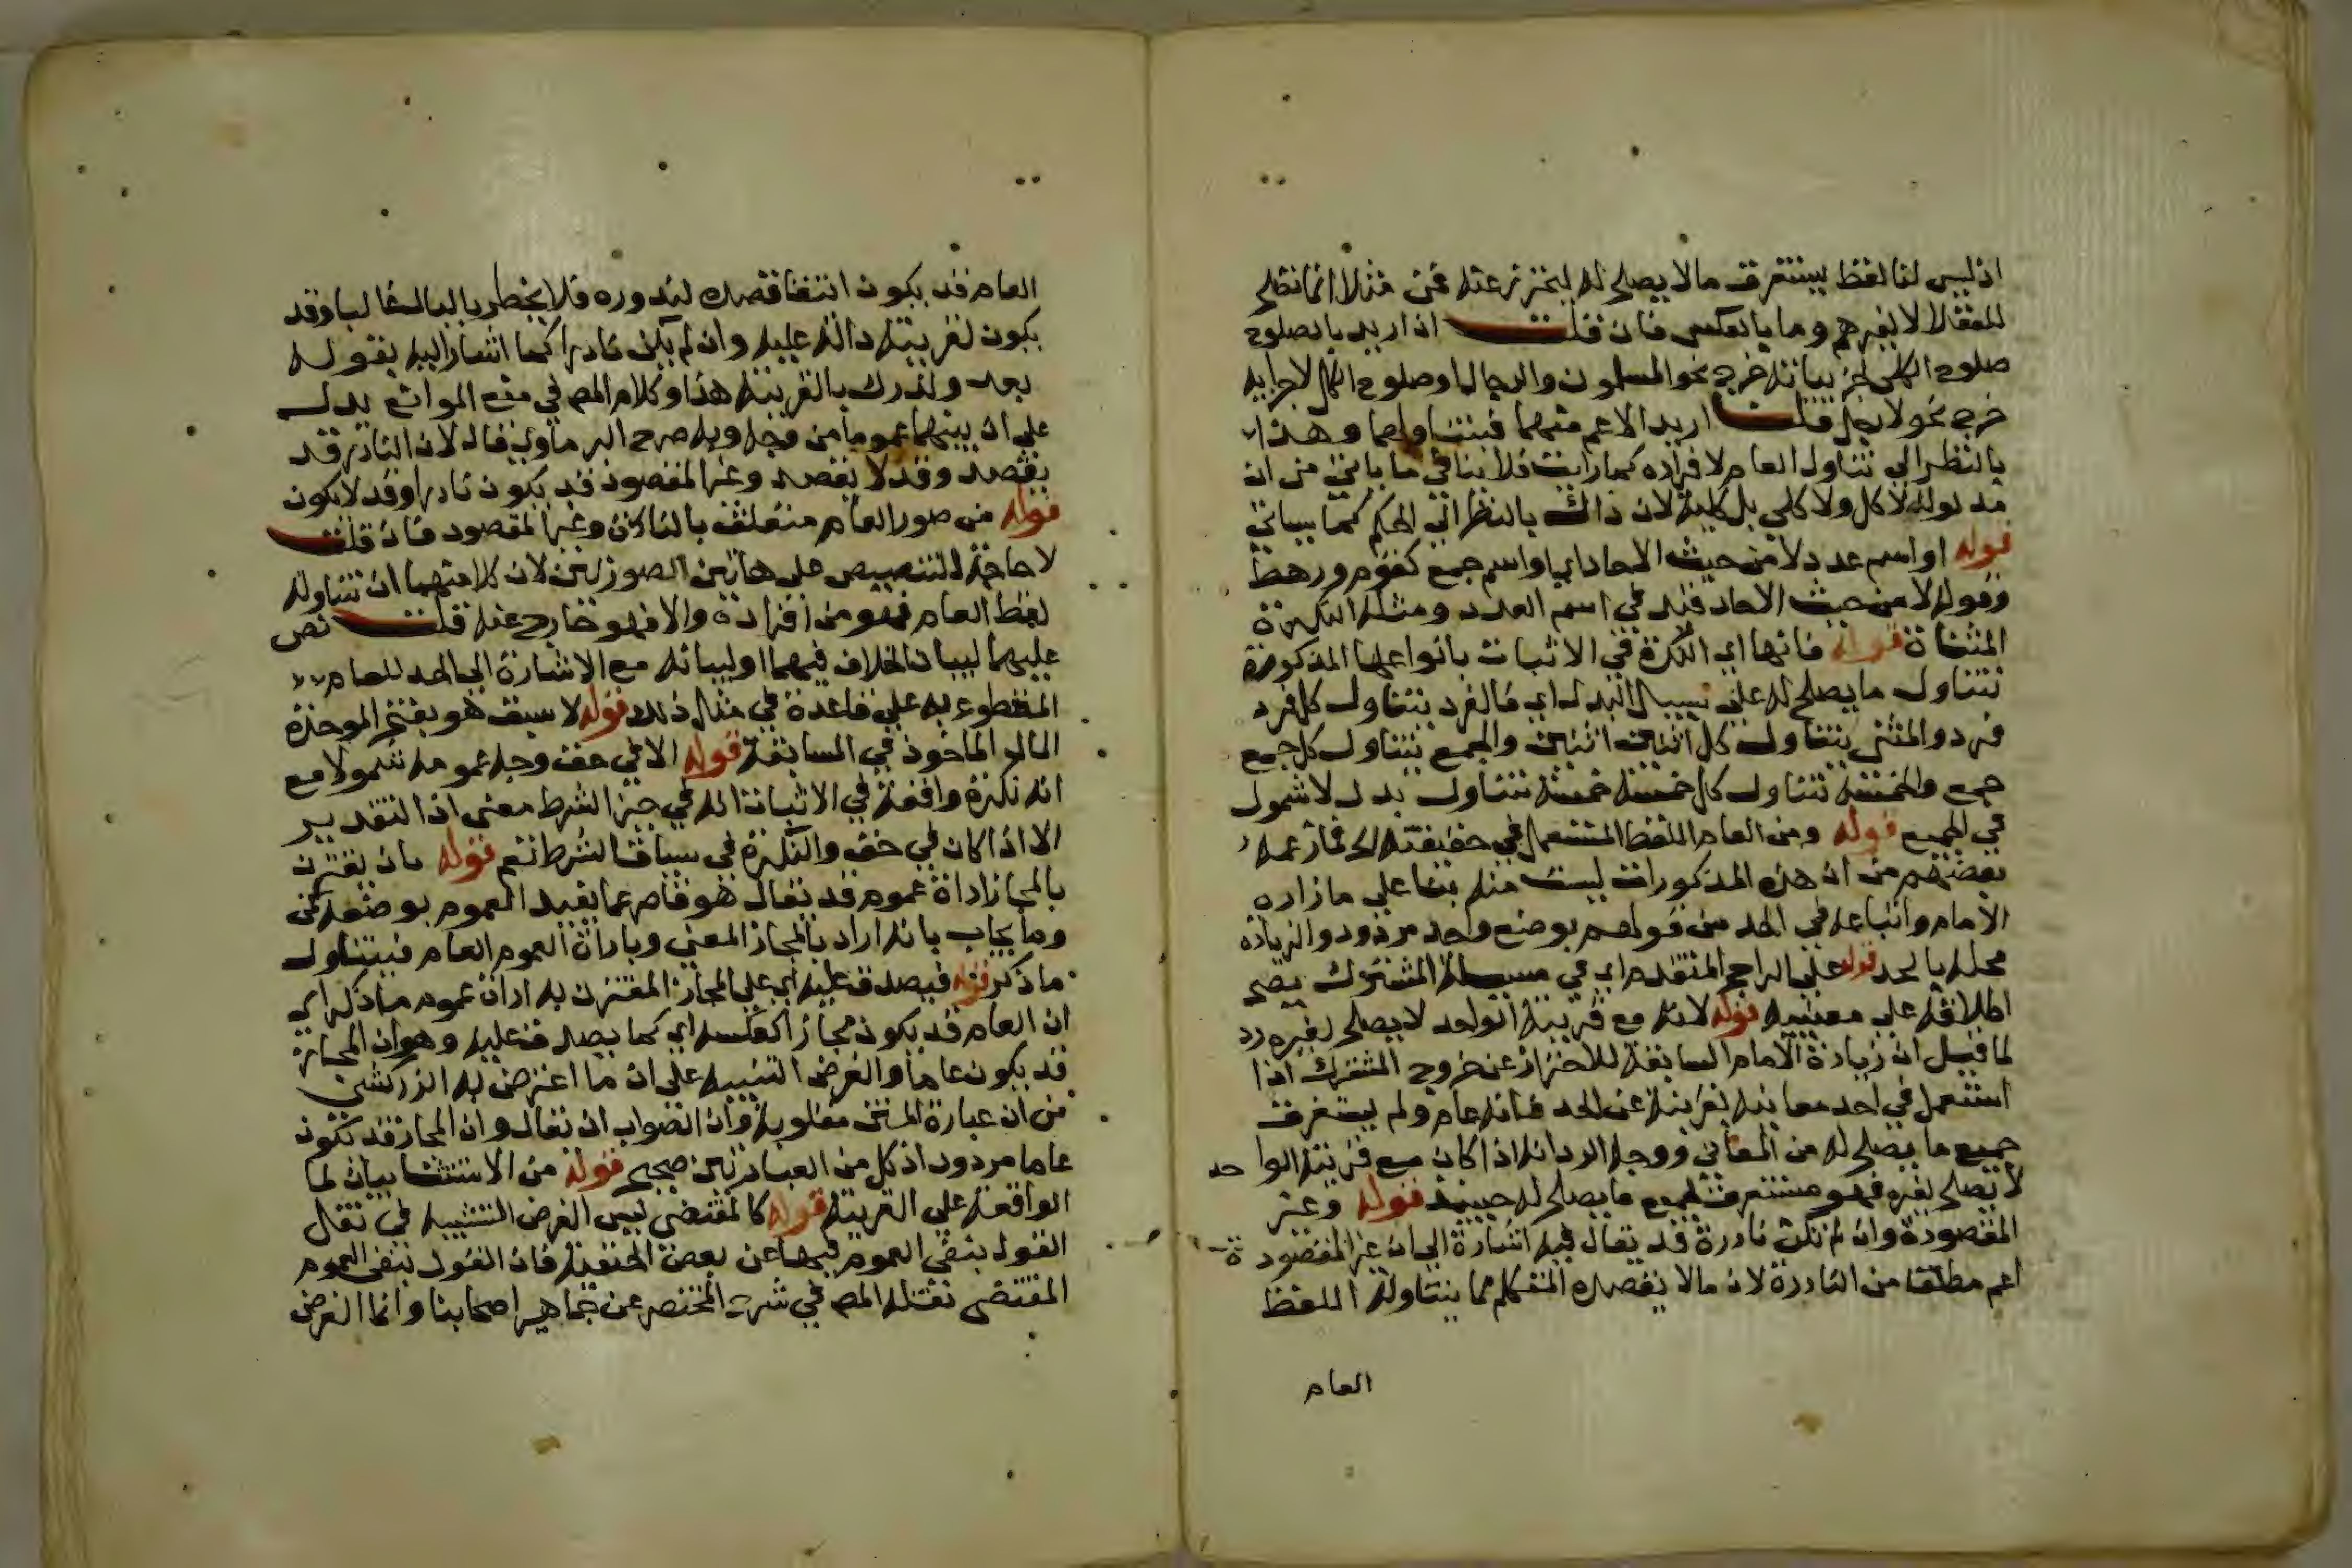 اذ ليس لنا لفظ يستغرق ما لا يصلح له ليحترز عنه فمن مثلا انما تصلح
للعقلا لا لغيرهم وما بالعكس فان قلت ان اريد بالصلوح
صلوح الكلى لجزيياته خرج نحو المسلمون والرجال او صلوح الكل لاجزايه
خرج نحو لا رجل قلت اريد الاعم منهما فيتناولهما وهذا
بالنظر الي تناول العام لافراده كما رايت فلا ينافي ما ياتي من ان
مدلوله لا كل ولا كلي بل كلية لان ذاك بالنظر الي الحكم كما سياتي
قوله او اسم عدد لا من حيث الاحاد اي او اسم جمع كقوم ورهط
وقوله لا من حيث الاحاد قيد في اسم العدد ومثله النكرة
المثناة قوله فانها اي النكرة في الاثبات بانواعها المذكورة
تتناول ما يصلح له على سبيل البدل اي فالفرد يتناول كل فرد
فرد والمثنى يتناول كل اثنين اثنين والجمع يتناول كل جمع
جمع والخمسة تتناول كل خمسة خمسة تتناول بدل لا شمول
في الجميع قوله ومن العام اللفظ المستعمل في حقيقته الخ فما زعمه
بعضهم من ان هذه المذكورات ليست منه بنا علي ما زاده
الامام واتباعه في الحد من قولهم بوضع واحد مردود والزيادة
مخلة بالحد قوله على الراجح المتقدم اي في مسيلة المشترك يصح
اطلاقه علي معنييه قوله لانه مع قرينة الواحد لا يصلح لغيره رد
لما قيل ان زيادة الامام السابقة للاحتراز عن خروج المشترك اذا
استعمل في احد معانيه بقرينة عن الحد فانه عام ولم يستغرق
جميع ما يصلح له من المعاني ووجه الرد انه اذا كان مع قرينة الواحد
لا يصلح لغيره فهو مستغرق لجميع ما يصلح له حينيذ قوله وغير
المقصودة وان لم تكن نادرة قد يقال فيه اشارة الي ان غير المقصودة
اعم مطلقا من النادرة لان ما لا يقصده المتكلم مما يتناوله اللفظ
العام
العام قد يكون انتفا قصده لندوره فلا يخطر بالبال غالبا وقد
يكون لقرينة دالة عليه وان لم يكن نادرا كما اشار اليه بقوله
بعد وتدرك بالقرينة هذا وكلام المص في منع الموانع يدل
على ان بينهما عموما من وجه وبه صرح البرماوي فقال لان النادر قد
يقصد وقد لا يقصد وغير المقصود قد يكون نادرا وقد لا يكون
قوله من صور العام متعلق بالنادر وغير المقصود فان قلت
لا حاجة للتنصيص على هاتين الصورتين لان كلا منهما ان تناوله
لفظ العام فهو من افراده والا فهو خارج عنه قلت نص
عليهما لبيان الخلاف فيهما او لبيانه مع الاشارة الي الحد للعام
المقطوع به علي قاعدة في مثال ذلك قوله لا سبق هو بفتح الموحدة
المال الماخوذ في المسابقة قوله الا في خف وجه عمومه شمولا مع
انه نكرة واقعة في الاثبات انه في حيز الشرط معنى اذ التقدير
الا اذا كان في خف والنكرة في سياق الشرط تعم قوله بان يقترن
بالمجاز اداة عموم قد يقال هو قاصر عما يفيد العموم بوضعه كمن
وما يجاب بانه اراد بالمجاز المعنى وباداة العموم العام فيتناول
ما ذكر قوله فيصدق عليه اي على المجاز المقترن به اداة عموم ما ذكر اي
ان العام قد يكون مجازا كعكسه اي كما يصدق عليه وهو ان المجاز
قد يكون عاما والغرض التنبيه على ان ما اعترض به الزركشي
من ان عبارة المتن مقلوبة وان الصواب ان يقال وان المجاز قد يكون
عاما مردود اذ كل من العبارتين صحيح قوله من الاستثنا بيان لما
الواقعة علي القرينة قوله كالمقتضي ليس الغرض التشبيه في نقل
القول بنفي العموم فيها عن بعض الحنفية فان القول بنفي العموم
المقتضى نقله المص في شرح المختصر عن جماهير اصحابنا وانما الغرض